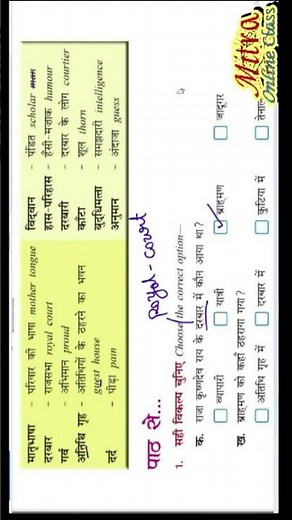 मातृभाषा - परिवार की भाषा mother tongue
दरबार - राजसभा royal court
गर्व - अभिमान proud
अतिथि गृह - अतिथियों के ठहरने का भवन
guest house
दर्द - पीड़ा pain
विद्वान - पंडित scholar
हास-परिहास - हँसी-मज़ाक humour
दरबारी - दरबार के लोग courtier
काँटा - शूल thorn
बुद्धिमत्ता - समझदारी intelligence
अनुमान - अंदाज़ा guess
पाठ से...
royal-court
1. सही विकल्प चुनिए Choose the correct option—
क. राजा कृष्णदेव राय के दरबार में कौन आया था?
व्यापारी यात्री ब्राहमण जादूगर
ख. ब्राहमण को कहाँ ठहराया गया?
अतिथि गृह में दरबार में कुटिया में
Mitra
Online Class